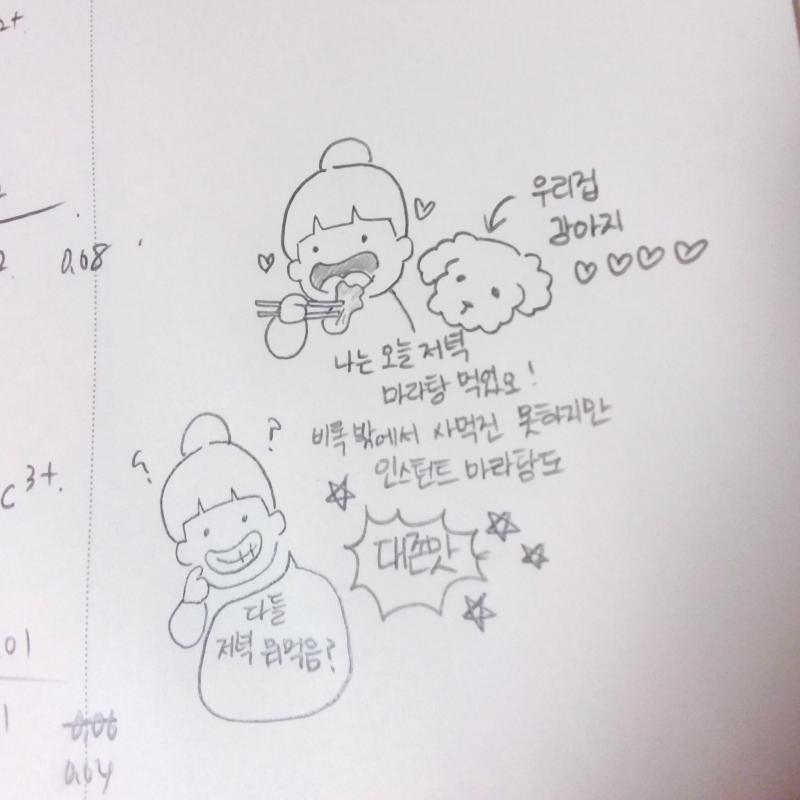 2+
0.08
2
우리집
강아지
나는 오늘 저녁
마라탕 먹었오!
비록 밖에서 사먹진 못하지만
인스턴트 마라탕도
대존맛
? ?
다들
저녁 뭐먹음?
C³⁺.
01
1
0.06
0.04